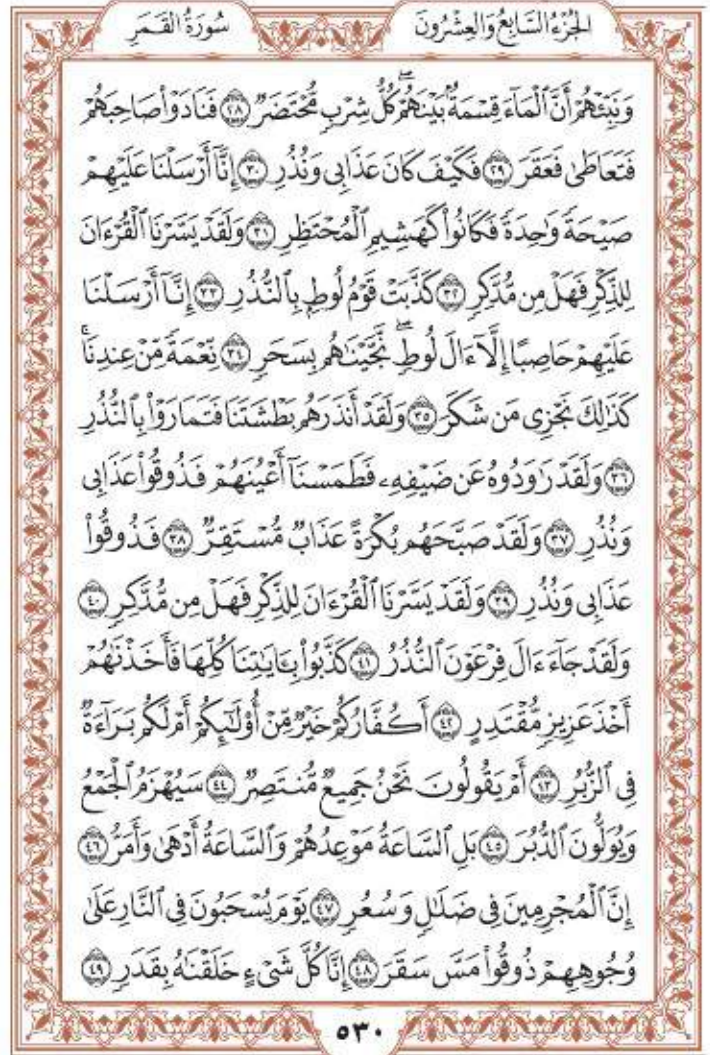 الجُزْءُ السَّابِعُ وَالعِشْرُونَ سُورَةُ القَمَرِ
وَنَبِّئْهُمْ أَنَّ ٱلْمَآءَ قِسْمَةٌۢ بَيْنَهُمْۖ كُلُّ شِرْبٍ مُّحْتَضَرٌ ﴿٢٨﴾ فَنَادَوْاْ صَاحِبَهُمْ
فَتَعَاطَىٰ فَعَقَرَ ﴿٢٩﴾ فَكَيْفَ كَانَ عَذَابِى وَنُذُرِ ﴿٣٠﴾ إِنَّآ أَرْسَلْنَا عَلَيْهِمْ
صَيْحَةً وَٰحِدَةً فَكَانُواْ كَهَشِيمِ ٱلْمُحْتَظِرِ ﴿٣١﴾ وَلَقَدْ يَسَّرْنَا ٱلْقُرْءَانَ
لِلذِّكْرِ فَهَلْ مِن مُّدَّكِرٍ ﴿٣٢﴾ كَذَّبَتْ قَوْمُ لُوطٍۭ بِٱلنُّذُرِ ﴿٣٣﴾ إِنَّآ أَرْسَلْنَا
عَلَيْهِمْ حَاصِبًا إِلَّآ ءَالَ لُوطٍۖ نَّجَّيْنَٰهُم بِسَحَرٍ ﴿٣٤﴾ نِّعْمَةً مِّنْ عِندِنَاۚ
كَذَٰلِكَ نَجْزِى مَن شَكَرَ ﴿٣٥﴾ وَلَقَدْ أَنذَرَهُم بَطْشَتَنَا فَتَمَارَوْاْ بِٱلنُّذُرِ
﴿٣٦﴾ وَلَقَدْ رَٰوَدُوهُ عَن ضَيْفِهِۦ فَطَمَسْنَآ أَعْيُنَهُمْ فَذُوقُواْ عَذَابِى
وَنُذُرِ ﴿٣٧﴾ وَلَقَدْ صَبَّحَهُم بُكْرَةً عَذَابٌ مُّسْتَقِرٌّ ﴿٣٨﴾ فَذُوقُواْ
عَذَابِى وَنُذُرِ ﴿٣٩﴾ وَلَقَدْ يَسَّرْنَا ٱلْقُرْءَانَ لِلذِّكْرِ فَهَلْ مِن مُّدَّكِرٍ ﴿٤٠﴾
وَلَقَدْ جَآءَ ءَالَ فِرْعَوْنَ ٱلنُّذُرُ ﴿٤١﴾ كَذَّبُواْ بِـَٔايَٰتِنَا كُلِّهَا فَأَخَذْنَٰهُمْ
أَخْذَ عَزِيزٍ مُّقْتَدِرٍ ﴿٤٢﴾ أَكُفَّارُكُمْ خَيْرٌ مِّنْ أُوْلَٰٓئِكُمْ أَمْ لَكُم بَرَآءَةٌ
فِى ٱلزُّبُرِ ﴿٤٣﴾ أَمْ يَقُولُونَ نَحْنُ جَمِيعٌ مُّنتَصِرٌ ﴿٤٤﴾ سَيُهْزَمُ ٱلْجَمْعُ
وَيُوَلُّونَ ٱلدُّبُرَ ﴿٤٥﴾ بَلِ ٱلسَّاعَةُ مَوْعِدُهُمْ وَٱلسَّاعَةُ أَدْهَىٰ وَأَمَرُّ ﴿٤٦﴾
إِنَّ ٱلْمُجْرِمِينَ فِى ضَلَٰلٍ وَسُعُرٍ ﴿٤٧﴾ يَوْمَ يُسْحَبُونَ فِى ٱلنَّارِ عَلَىٰ
وُجُوهِهِمْ ذُوقُواْ مَسَّ سَقَرَ ﴿٤٨﴾ إِنَّا كُلَّ شَىْءٍ خَلَقْنَٰهُ بِقَدَرٍ ﴿٤٩﴾
٥٣٠